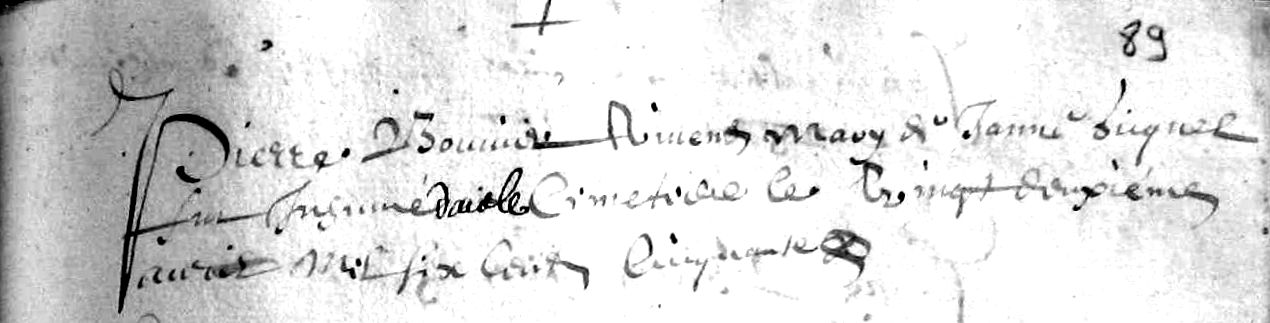 89
Pierre Bouvier vivens Mary de Janne
fut Inhumé dans le Cimetiere le vingt deuxiéme
auril Mil six Cents Cinquante